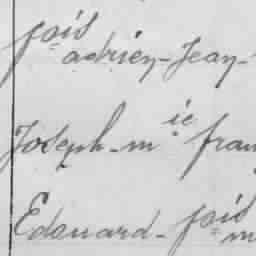 fois
adrien-Jean-
Joseph-m ie fran
Edouard-fois
m